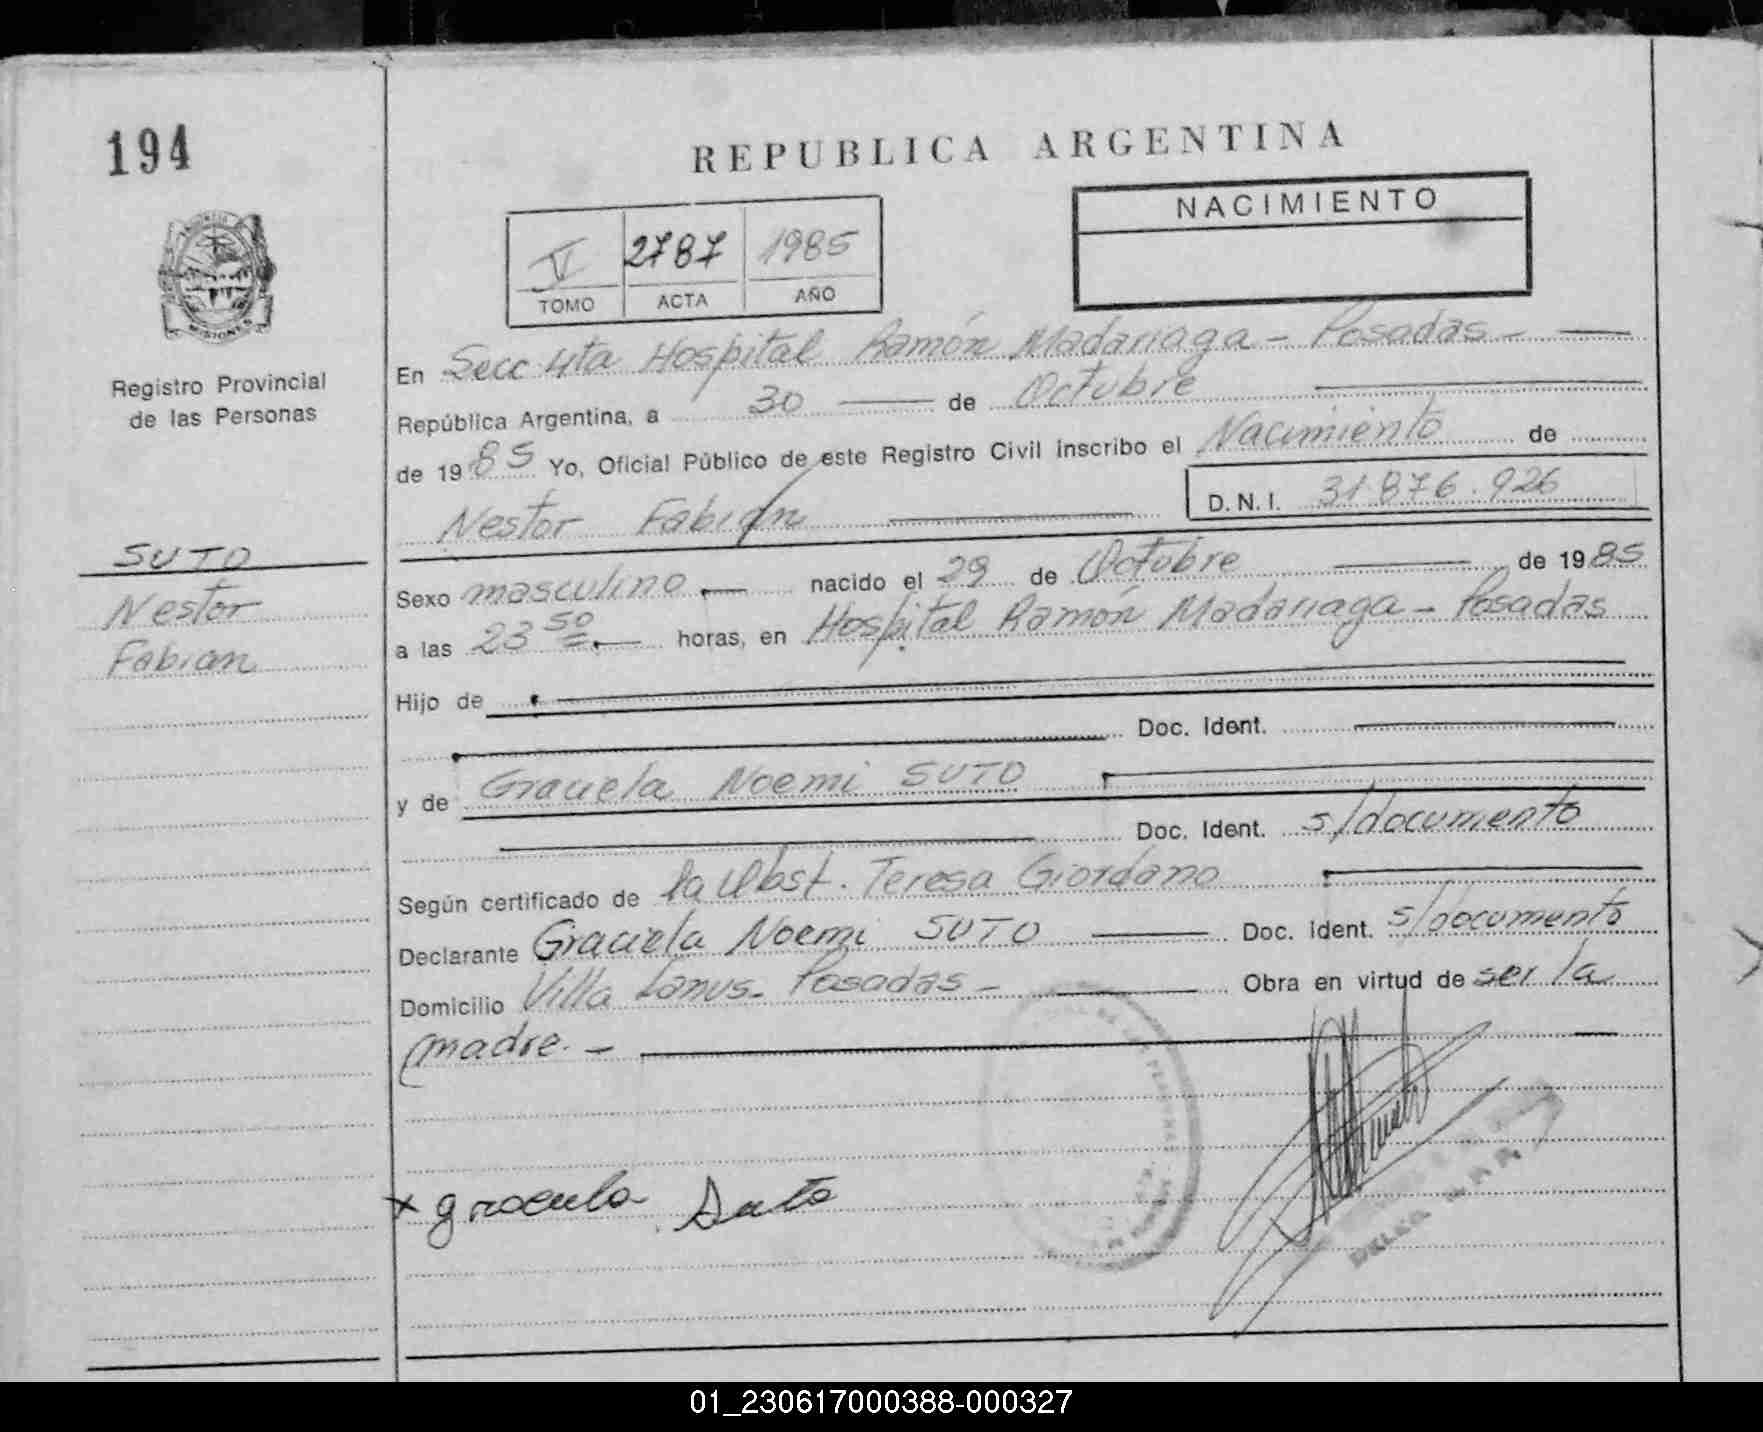 194
REPUBLICA ARGENTINA
NACIMIENTO
V 2787 1985
TOMO ACTA AÑO
MISIONES
Registro Provincial
de las Personas
En Secc 4ta Hospital Ramón Madariaga - Posadas -
República Argentina, a 30 de Octubre
de 1985 Yo, Oficial Público de este Registro Civil inscribo el Nacimiento de
D.N.I. 31.876.926
Nestor Fabian
SUTO
Nestor
Fabian
Sexo masculino nacido el 29 de Octubre de 1985
a las 23 50 horas, en Hospital Ramón Madariaga - Posadas
Hijo de
Doc. Ident.
y de Graciela Noemi SUTO
Doc. Ident. s/documento
Según certificado de la Obst. Teresa Giordano
Declarante Graciela Noemi SUTO Doc. Ident. s/documento
Domicilio Villa Lanus - Posadas - Obra en virtud de ser la
madre. -
x graciela Suto
01_230617000388-000327